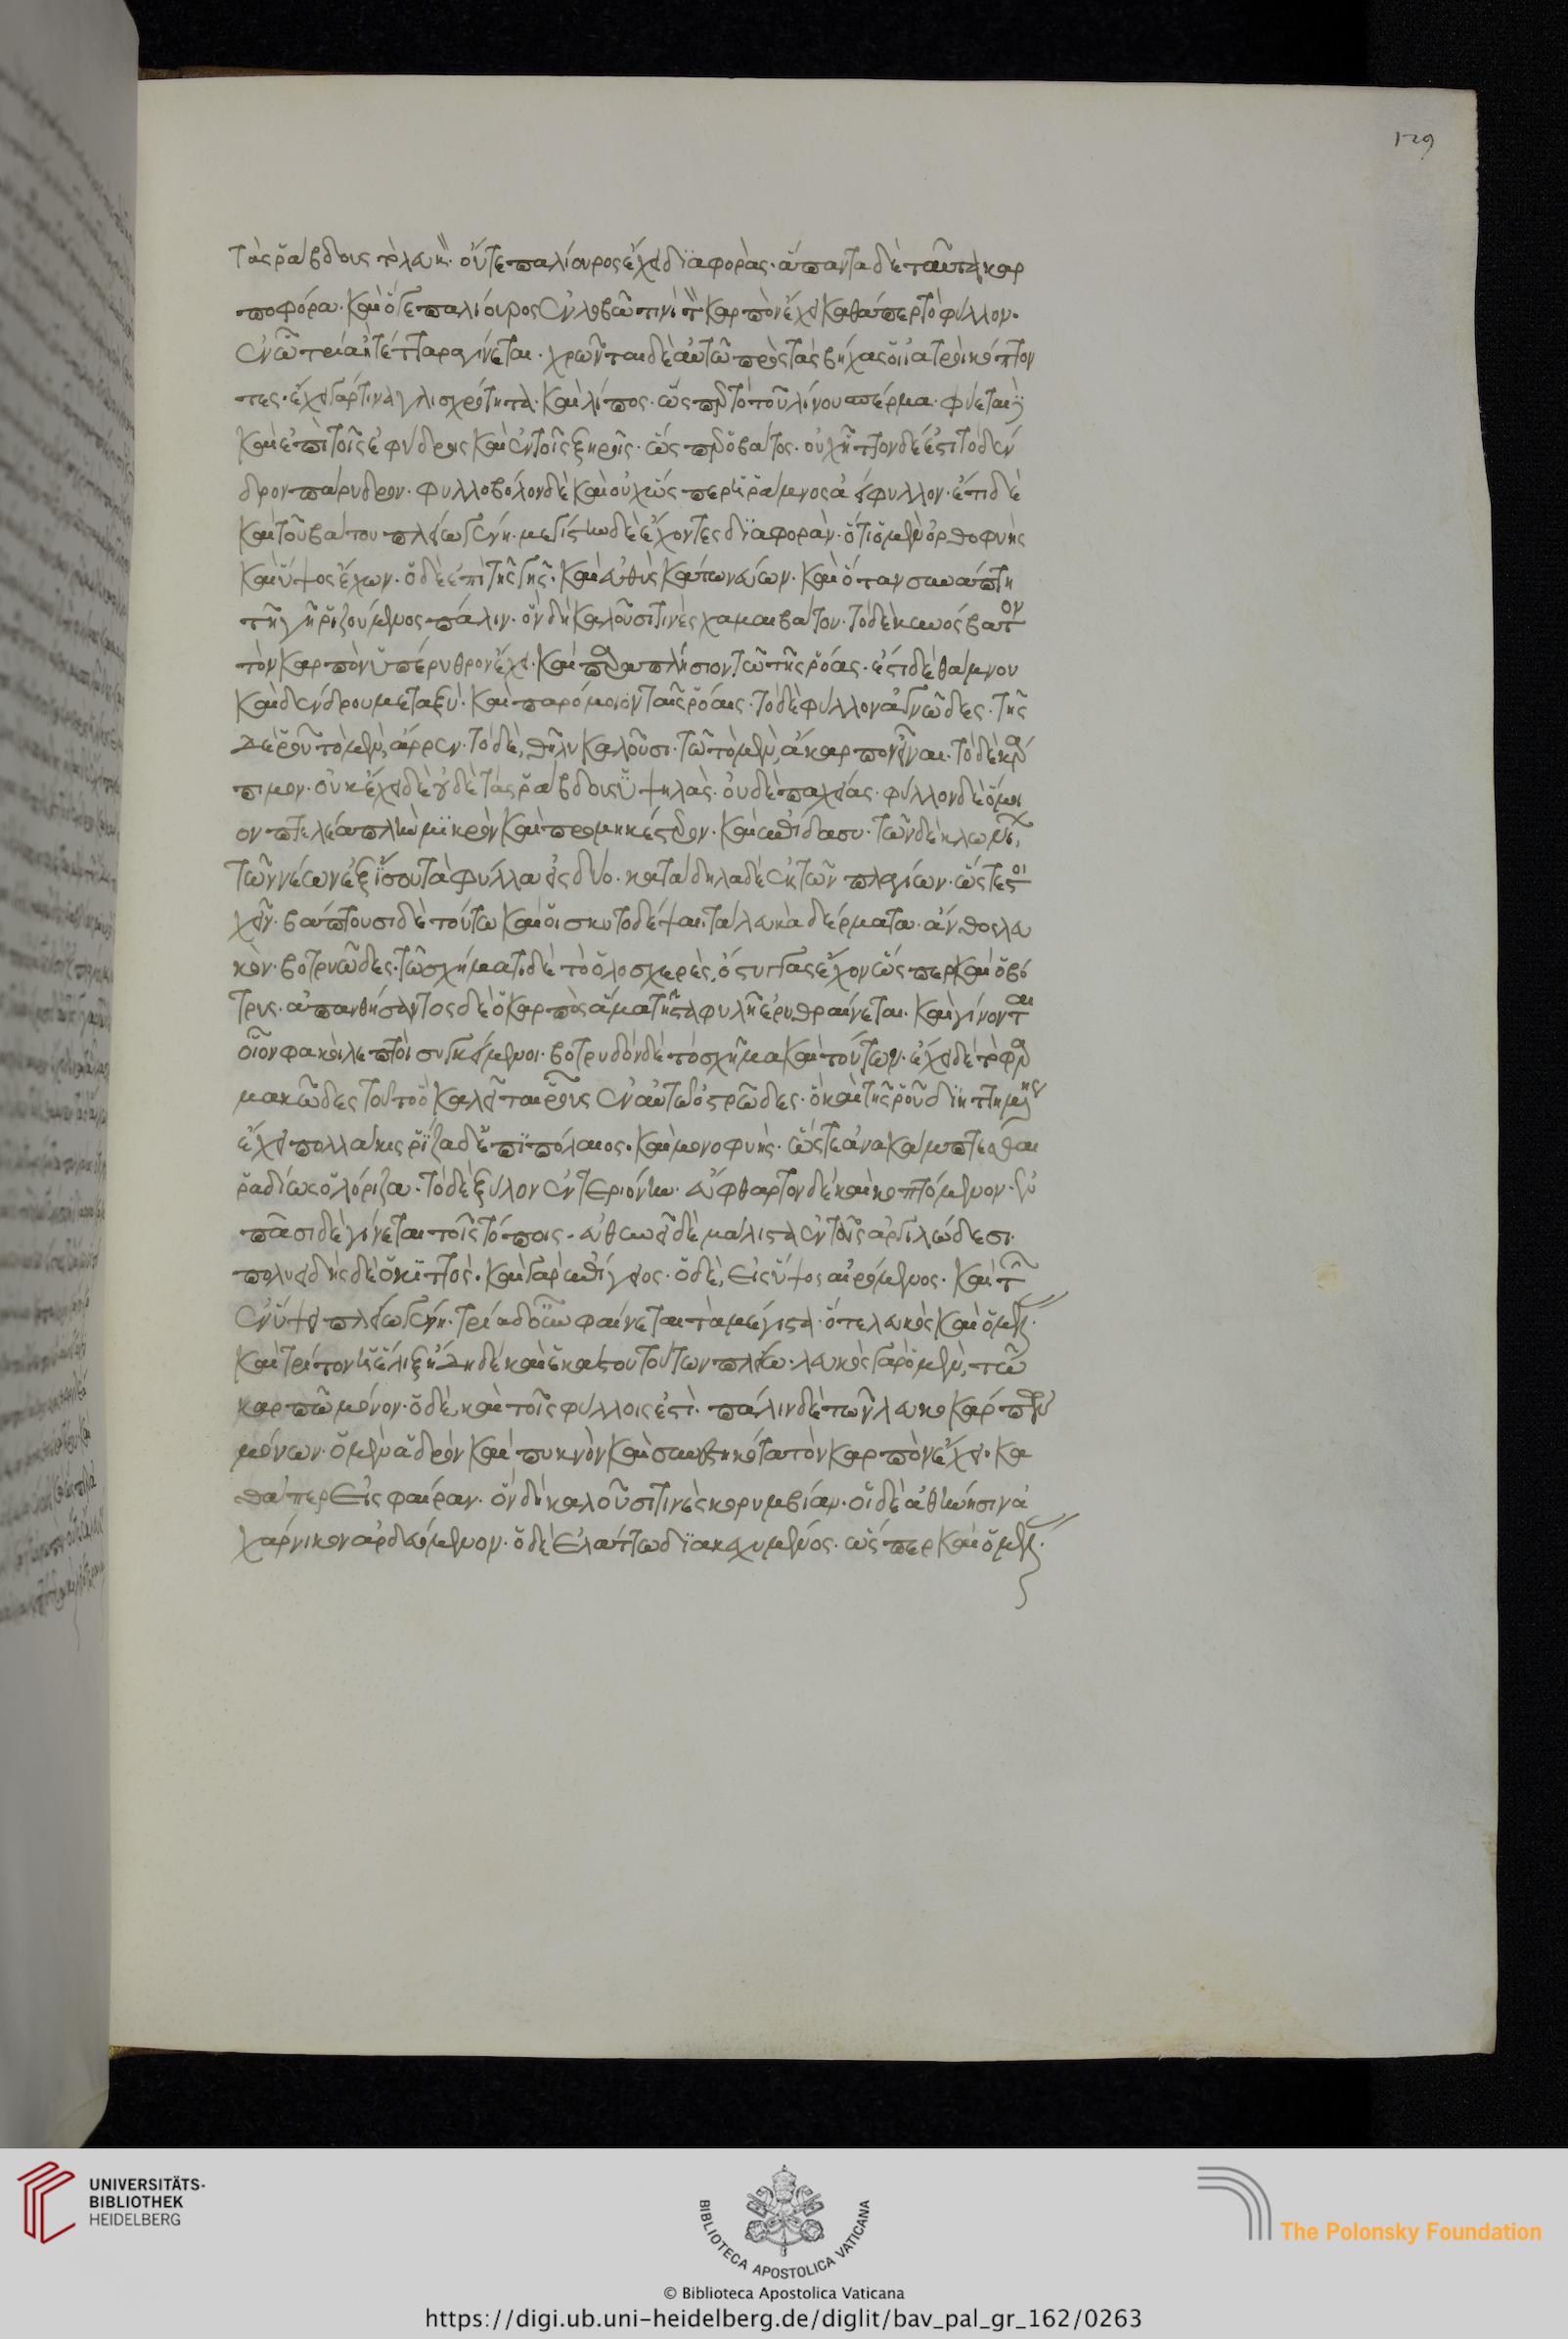 129
τὰς ῥάβδους τὸ λευκὴ. ὅ,τε παλίουρος ἔχει διαφορὰς. ἅπαντα δὲ ταῦτα καρ
ποφόρα. καὶ ὅ,τε παλίουρος ἐν λοβῷ τινὶ τὸν καρπὸν ἔχει καθάπερ τὸ φύλλον.
ἐν ᾧ τρία ἢ τέτταρα γίνεται. χρῶνται δὲ αὐτῷ πρὸς τὰς βῆχας οἱ ἰατροὶ κόπτον
τες. ἔχει γάρ τινα γλισχρότητα καὶ λίπος. ὥσπερ τὸ τοῦ λίνου σπέρμα. φύεται
καὶ ἐπὶ τοῖς ἐφύδροις καὶ ἐν τοῖς ξηροῖς. ὥσπερ ὁ βάτος. οὐχ ἧττον δέ ἐστι τὸ δέν
δρον πάρυδρον. φυλλοβόλον δὲ καὶ οὐχ ὥσπερ ἡ ῥάμνος ἀείφυλλον. ἔτι δὲ
καὶ τοῦ βάτου πλείω γένη. μεγίστην δὲ ἔχοντες διαφορὰν. ὅτι ὁ μὲν ὀρθοφυὴς
καὶ ὕψος ἔχων. ὁ δὲ ἐπὶ τῆς γῆς. καὶ εὐθὺς κάτω νεύων. καὶ ὅταν συνάπτῃ
τῇ γῇ ῥιζούμενος πάλιν. ὃν δὴ καλοῦσί τινες χαμαίβατον. τὸ δὲ κυνόσβατον
τὸν καρπὸν ὑπέρυθρον ἔχει. καὶ παραπλήσιον τῷ τῆς ῥόας. ἔστι δὲ θάμνου
καὶ δένδρου μεταξύ. καὶ παρόμοιον ταῖς ῥόαις. τὸ δὲ φύλλον ἀγνῶδες. τῆς
δὲ ῥοῦ τὸ μὲν, ἄρρεν. τὸ δὲ, θῆλυ καλοῦσι. τῷ τὸ μὲν, ἄκαρπον εἶναι. τὸ δὲ κάρ
πιμον. οὐκ ἔχει δὲ οὐδὲ τὰς ῥάβδους ὑψηλὰς. οὐδὲ παχείας. φύλλον δὲ ὅμοι
ον πτελέα πλὴν μικρὸν καὶ προμηκέστερον. καὶ ἐπίδασυ. τῶν δὲ κλωνίων
τῶν νέων ἐξ ἴσου τὰ φύλλα εἰς δύο. κατάλληλα δὲ ἐκ τῶν πλαγίων. ὥστε στοι
χεῖν. βάπτουσι δὲ τούτῳ καὶ οἱ σκυτοδέψαι τὰ λευκὰ δέρματα. ἄνθος λευ
κὸν. βοτρυῶδες. τῷ σχήματι δὲ τὸ ὁλοσχερὲς, ὄστλιγγας ἔχον ὥσπερ καὶ ὁ βό
τρυς. ἀπανθήσαντος δὲ ὁ καρπὸς ἅμα τῇ σταφυλῇ ἐρυθραίνεται. καὶ γίνονται
οἷον φακοὶ λεπτοὶ συγκείμενοι. βοτρυδὸν δὲ τὸ σχῆμα καὶ τούτων. ἔχει δὲ τὸ φαρ
μακῶδες τοῦτο ὃ καλεῖται ῥοῦς ἐν αὐτῷ ὀστῶδες. ὃ καὶ τῆς ῥοῦ διηττημένης
ἔχει πολλάκις ῥίζα δ' ἐπιπόλαιος. καὶ μονοφυὴς. ὥστε ἀνακάμπτεσθαι
ῥαδίως ὁλόριζα. τὸ δὲ ξύλον ἐντεριώνην. εὔφθαρτον δὲ καὶ κοπτόμενον. ἐν
πᾶσι δὲ γίνεται τοῖς τόποις. εὐθενεῖ δὲ μάλιστα ἐν τοῖς ἀργιλώδεσι.
πολυειδὴς δὲ ὁ κιττὸς. καὶ γὰρ ἐπίγειος. ὁ δὲ, εἰς ὕψος αἰρόμενος. καὶ τῶν
ἐν ὕψει πλείω γένη. τρία δ' οὖν φαίνεται τὰ μέγιστα. ὅ τε λευκὸς καὶ ὁ μέλας.
καὶ τρίτον ἡ ἕλιξ εἴδη δὲ καὶ ἑκάστου τούτων πλείω. λευκὸς γὰρ ὁ μὲν, τῷ
καρπῷ μόνον. ὁ δὲ καὶ τοῖς φύλλοις ἐστὶ. πάλιν δὲ τῶν λευκοκάρπων
μόνων. ὁ μὲν ἁδρὸν καὶ πυκνὸν καὶ συνεστηκότα τὸν καρπὸν ἔχει. κα
θάπερ εἰ σφαῖραν. ὃν δὴ καλοῦσί τινες κορυμβίαν. οἱ δὲ ἀθήνησιν ἀ
χαρνικὸν ἀρδευόμενον. ὁ δὲ ἐλάττω διακεχυμένος. ὥσπερ καὶ ὁ μέλας.
UNIVERSITÄTS-
BIBLIOTHEK
HEIDELBERG
BIBLIOTECA APOSTOLICA VATICANA
The Polonsky Foundation
© Biblioteca Apostolica Vaticana
https://digi.ub.uni-heidelberg.de/diglit/bav_pal_gr_162/0263